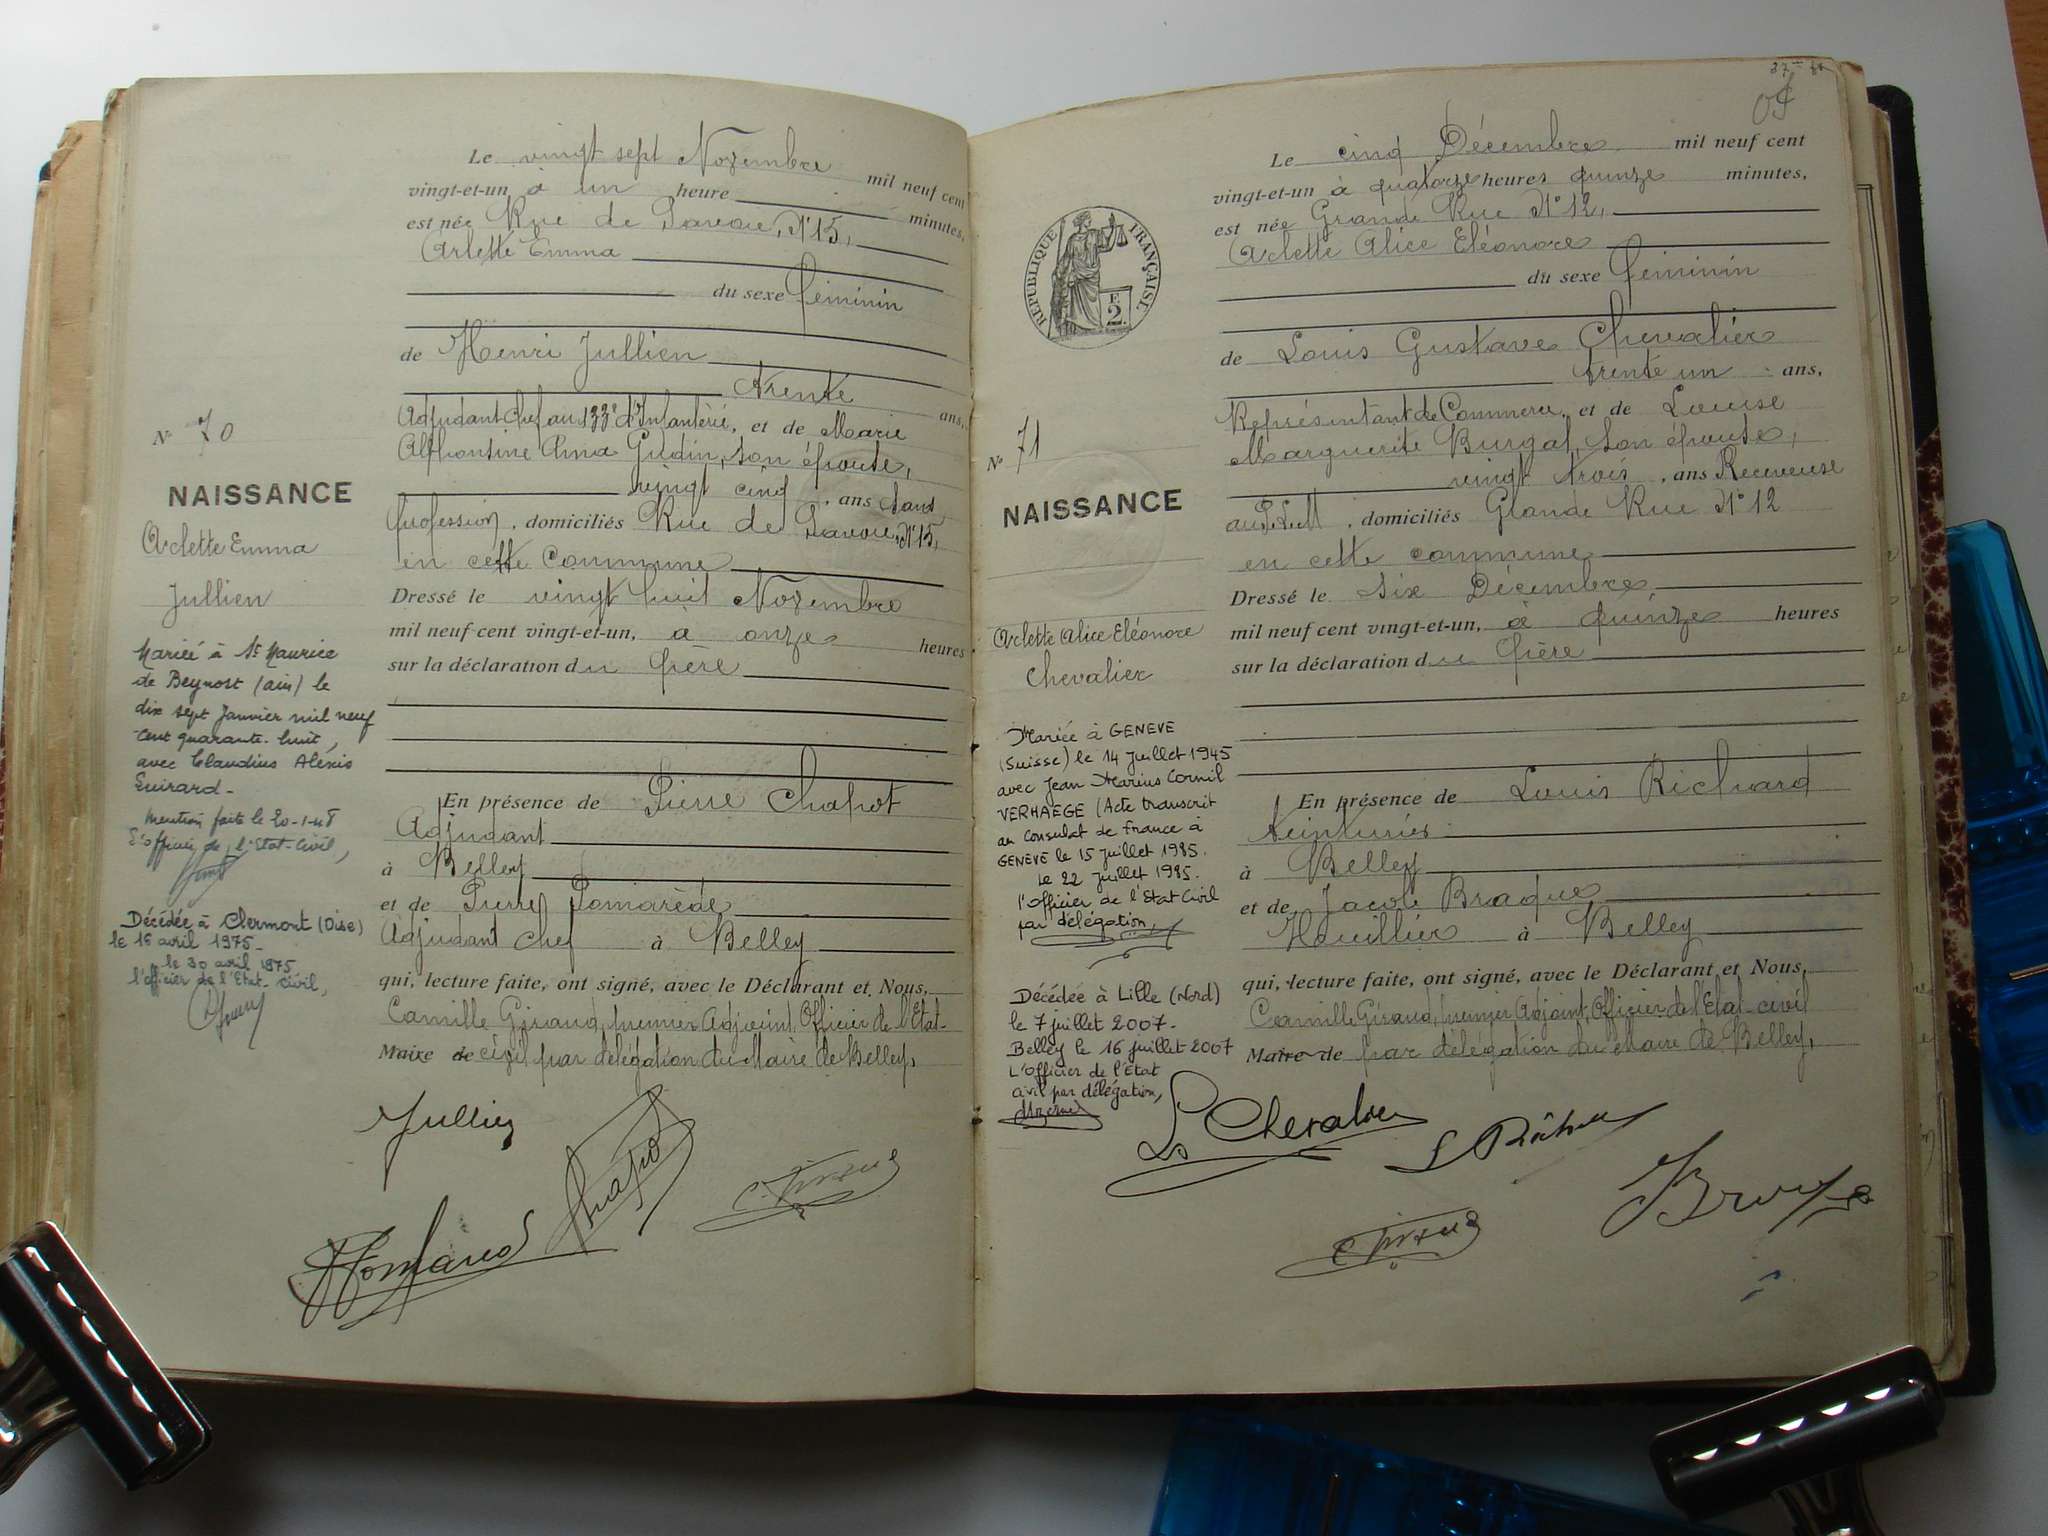 Le vingt sept Novembre mil neuf cent
vingt-et-un à un heure minutes,
est née Rue de Savoie, N° 15,
Arlette Emma
du sexe féminin
de Henri Jullien
trente ans,
Adjudant Chef au 133e d'Infanterie, et de Marie
Alphonsine Anna Gudin, son épouse,
vingt cinq, ans Sans
profession, domiciliés Rue de Savoie, N° 15,
en cette Commune
Dressé le vingt huit Novembre
mil neuf cent vingt-et-un, à onze heures
sur la déclaration du père
En présence de Pierre Chapot
Adjudant
à Belley
et de Pierre Pomarède
Adjudant Chef à Belley
qui, lecture faite, ont signé, avec le Déclarant et Nous,
Camille Giraud, premier Adjoint, Officier de l'Etat-
Maire de civil par délégation du Maire de Belley,
Jullien
N° 70
NAISSANCE
Arlette Emma
Jullien
Mariée à St Maurice
de Beynost (ain) le
dix sept Janvier mil neuf
cent quarante-huit,
avec Claudius Alexis
Guirard-
Mention faite le 20-1-48
L'officier de l'Etat-Civil,
Décédée à Clermont (Oise)
le 16 avril 1975-
le 30 avril 1975
l'officier de l'Etat-Civil,
Le cinq Décembre mil neuf cent
vingt-et-un à quatorze heures quinze minutes,
est née Grande Rue N° 12,
Arlette Alice Eléonore
du sexe féminin
de Louis Gustave Chevalier
trente un ans,
Représentant de Commerce, et de Louise
Marguerite Burgat, son épouse,
vingt trois, ans Receveuse
, domiciliés Grande Rue N° 12
en cette commune
Dressé le six Décembre
mil neuf cent vingt-et-un, à quinze heures
sur la déclaration du père
En présence de Louis Richard
teinturier
à Belley
et de Jacob Braque
Houillier à Belley
qui, lecture faite, ont signé, avec le Déclarant et Nous,
Camille Giraud, premier Adjoint, Officier de l'Etat-civil
Maire de par délégation du Maire de Belley,
L Chevalier
REPUBLIQUE FRANÇAISE
F
2
N° 71
NAISSANCE
Arlette Alice Eléonore
Chevalier
Mariée à GENEVE
(Suisse) le 14 Juillet 1945
avec Jean Marius Cornil
VERHAEGE (Acte transcrit
au Consulat de France à
GENEVE le 15 Juillet 1985.
Le 22 Juillet 1985.
l'Officier de l'Etat Civil
par délégation,
Décédée à Lille (Nord)
le 7 juillet 2007-
Belley le 16 juillet 2007
L'officier de l'Etat
civil par délégation,